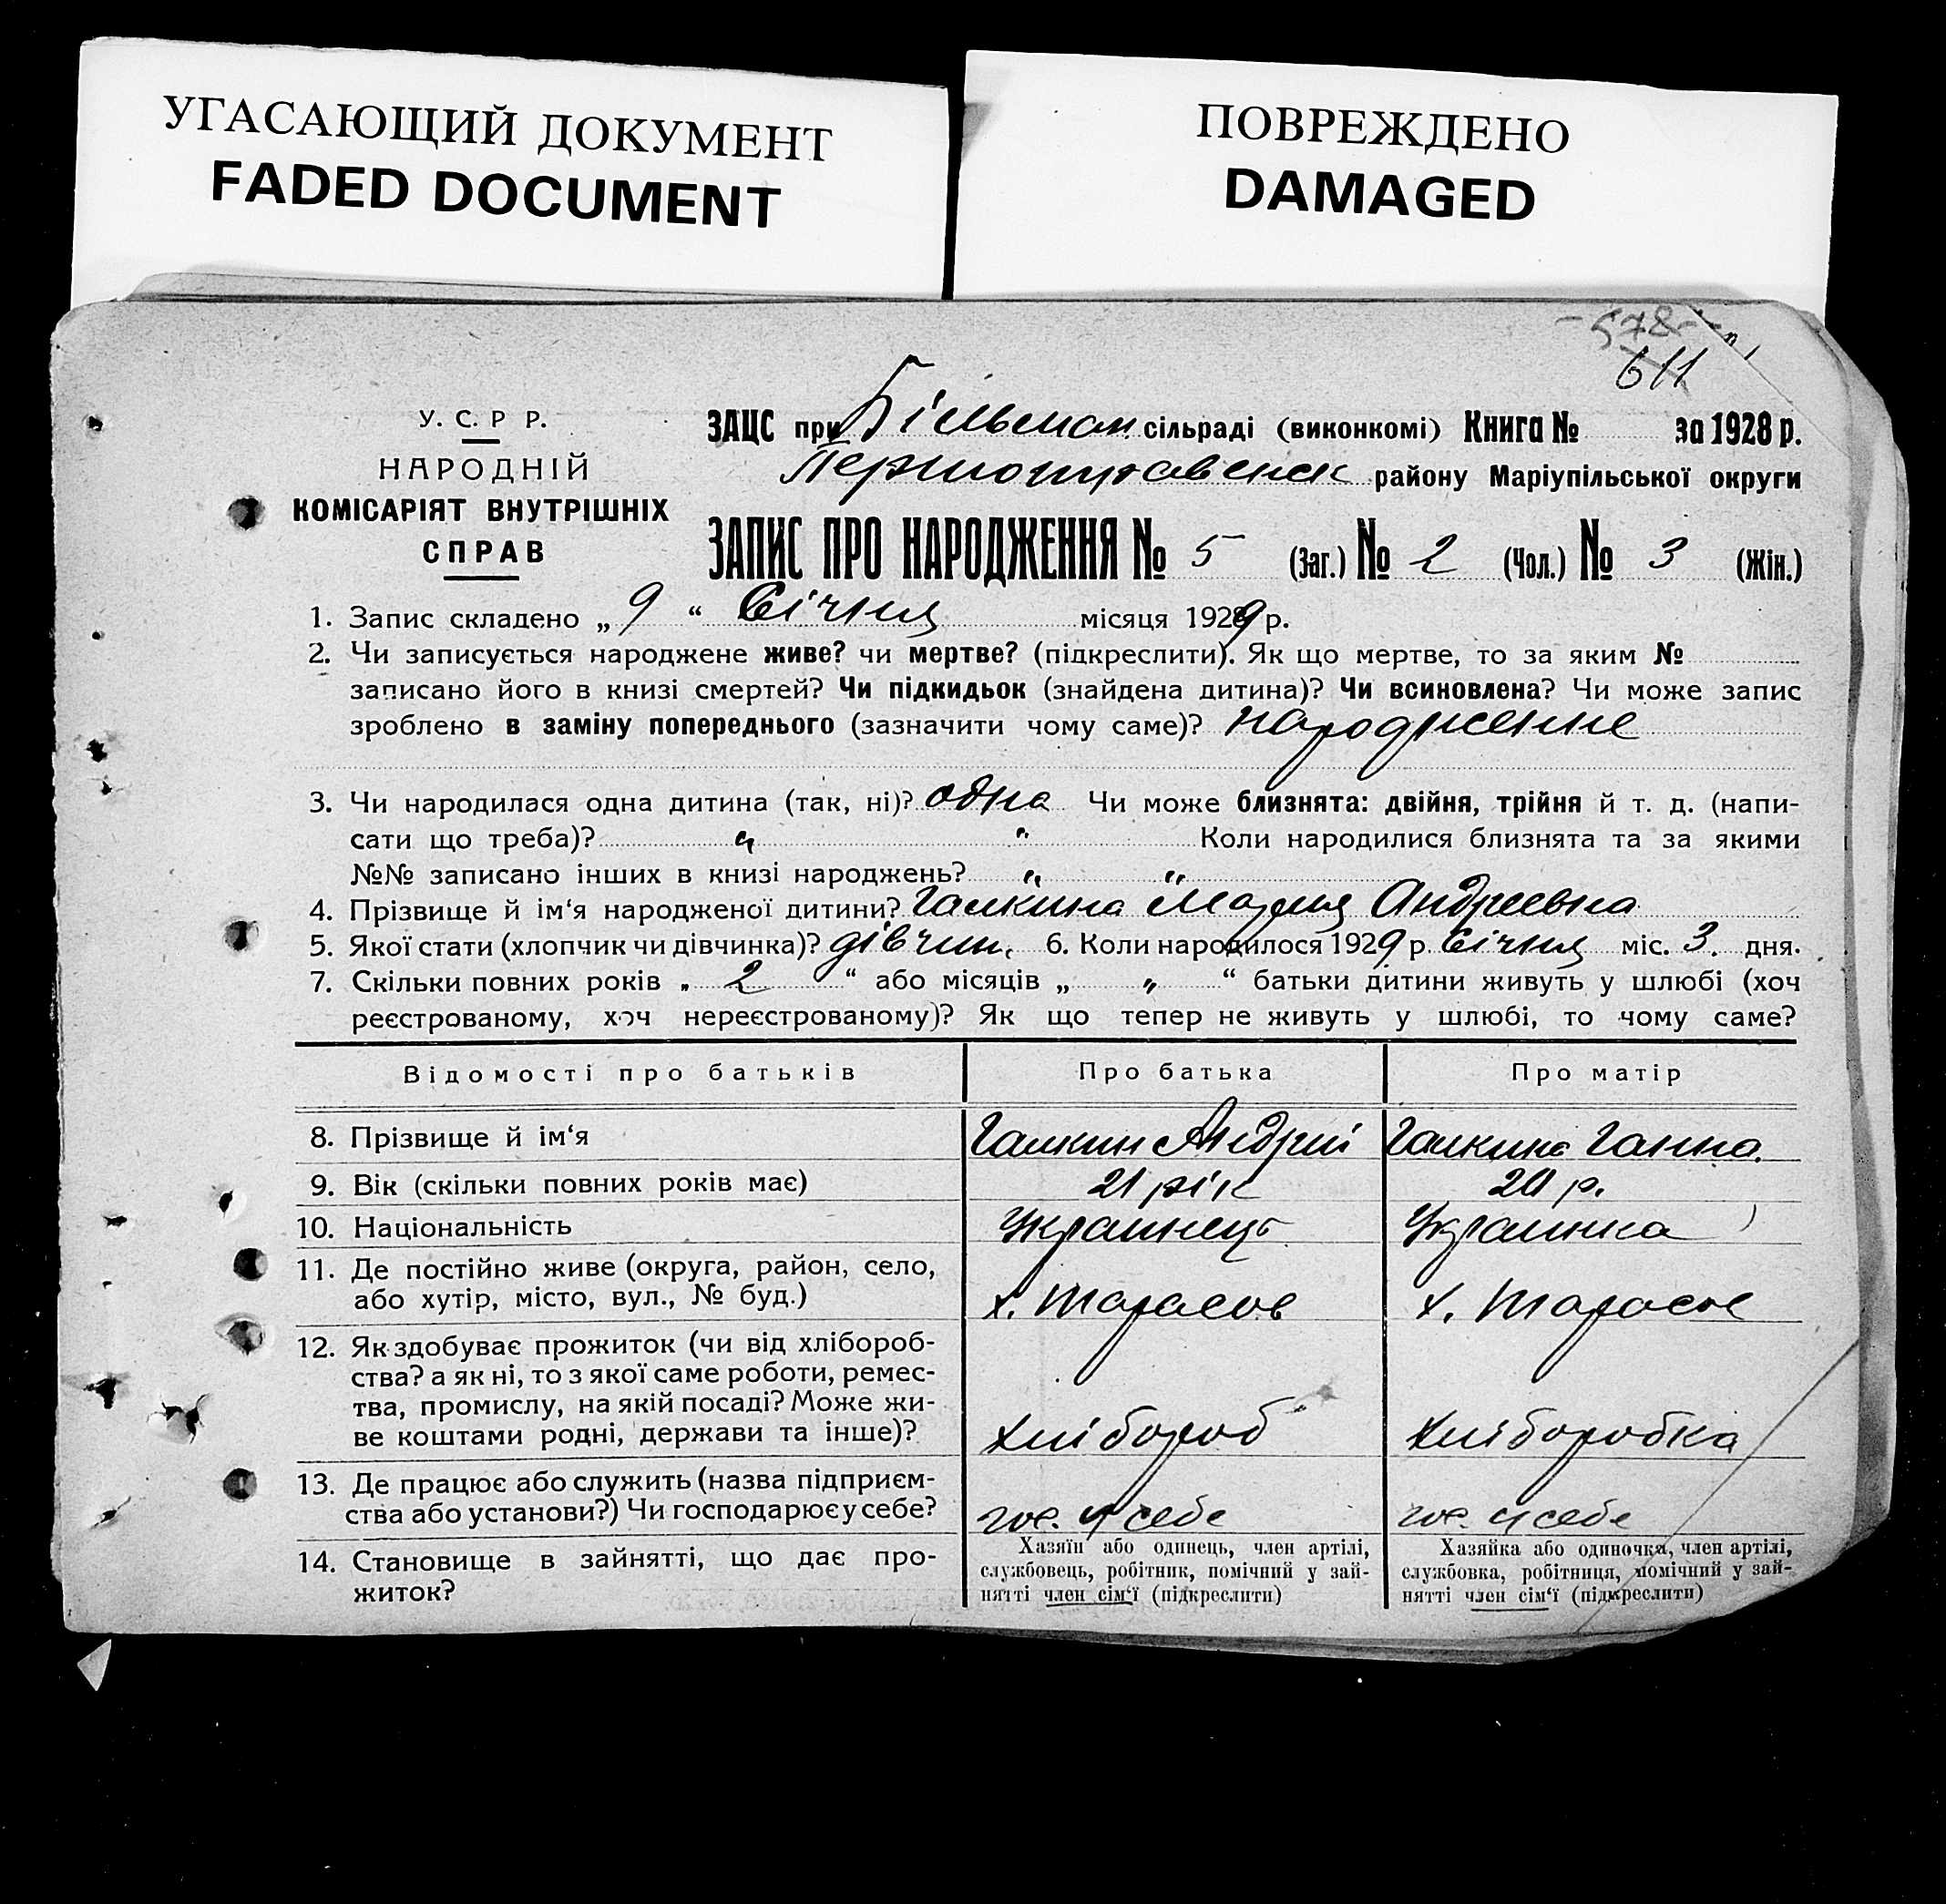 УГАСАЮЩИЙ ДОКУМЕНТ
FADED DOCUMENT
ПОВРЕЖДЕНО
DAMAGED
- 578 -
611
У. С. Р Р.
НАРОДНІЙ
КОМІСАРІЯТ ВНУТРІШНІХ
СПРАВ
ЗАЦС при Більман. сільраді (виконкомі) Книга № за 1928 р.
району Маріупільської округи
ЗАПИС ПРО НАРОДЖЕННЯ № 5 (Заг.) № 2 (Чол.) № 3 (Жін.)
1. Запис складено „ 9 “ Січня місяця 1929 р.
2. Чи записується народжене живе? чи мертве? (підкреслити). Як що мертве, то за яким №
записано його в книзі смертей? Чи підкидьок (знайдена дитина)? Чи всиновлена? Чи може запис
зроблено в заміну попереднього (зазначити чому саме)? народженне
3. Чи народилася одна дитина (так, ні)? одна Чи може близнята: двійня, трійня й т. д. (напи-
сати що треба)? „ „ Коли народилися близнята та за якими
№№ записано інших в книзі народжень? „ „
4. Прізвище й ім‘я народженої дитини? Галкина Мария Андреевна
5. Якої стати (хлопчик чи дівчинка)? дівчин. 6. Коли народилось 1929 р. Січня міс. 3. дня.
7. Скільки повних років „ 2 “ або місяців „ „ “ батьки дитини живуть у шлюбі (хоч
реєстрованому, хоч нереєстрованому)? Як що тепер не живуть у шлюбі, то чому саме?
Відомості про батьків Про батька Про матір
8. Прізвище й ім‘я Галкин Андрій Галкина Ганна.
9. Вік (скільки повних років має) 21 рік 20 р.
10. Національність Украинець Украинка
11. Де постійно живе (округа, район, село,
або хутір, місто, вул., № буд.) х. Тарасов х. Тарасов
12. Як здобуває прожиток (чи від хлібороб-
ства? а як ні, то з якої саме роботи, ремес-
тва, промислу, на якій посаді? Може жи-
ве коштами родні, держави та інше)? Хлібороб Хліборобка
13. Де працює або служить (назва підприєм-
ства або установи?) Чи господарює у себе? гос. у себе гос. у себе
14. Становище в зайнятті, що дає про-
житок?
Хазяїн або одинець, член артілі,
службовець, робітник, помічний у зай-
нятті член сім‘ї (підкреслити)
Хазяйка або одиночка, член артілі,
службовка, робітниця, помічний у зай-
нятті член сім‘ї (підкреслити)